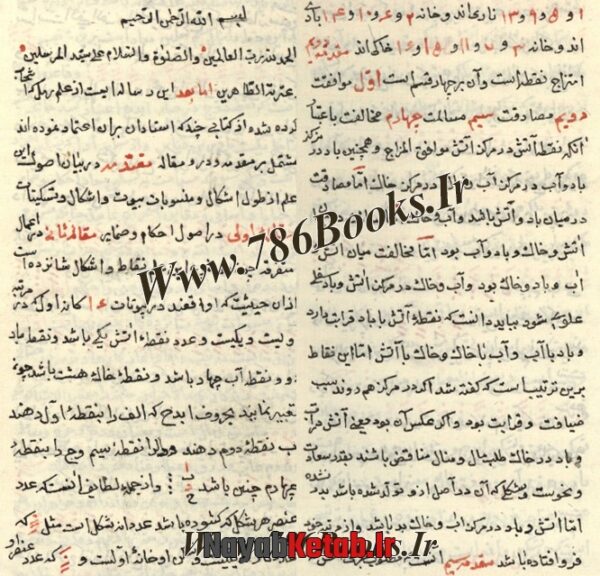 بسم الله الرحمن الرحیم
الحمد لله رب العالمین والصلوة والسلام علی سید المرسلین
عترته الطاهرین اما بعد این رساله ایست از علم رمل که
کرده شده از کتابی چند که استادان بران اعتماد نموده اند
مشتمل بر مقدمه و دو مقاله مقدمه در بیان اصول
علم از طول اشکال و منسوبات بیوت و اشکال و تسکینات
اولی در اصول احکام و ضمایر مقاله ثانیه در
نقاط و اشکال شانزده است
ازان حیثیت که واقعند در بیوتات ۱۶ کانه اول که در
و بیکیست و عدد نقطهٔ آتش یکی باشد و نقطه باد
دو و نقطه آب چهار باشد و نقطهٔ خاك هشت باشد چون
تعبیر نمایند بحروف ابدح که الف را بنقطهٔ اول دهند
ب نقطهٔ دوم دهند و دال را نقطهٔ سیم و ح را بنقطهٔ
چهارم چنین باشد وازجمله لطایف انست که عدد
عنصر هر شکل که کشوده باشد عدد آن شکل است مثل که
خانهٔ اولست و که عدد
۱ و ۵ و ۹ و ۱۳ ناری اند و خانه ۲ و ۶ و ۱۰ و ۱۴ بادی
اند و خانه ۳ و ۷ و ۱۱ و ۱۵ خاکی اند مقدمه دویم
امتزاج نقطه است و آن بر چهار قسم است اول موافقت
دویم مصادقت سیم مسالمت چهارم مخالفت باعتبار
آنکه نقطهٔ آتش در مرکز آتش موافق المزاج و همچنین باد در مرکز
باد و آب در مرکز آب و خاك در مرکز خاك اما مصادقت
در میان باد و آتش باشد و آب و خاك
آتش و خاك و باد و آب بود اما مخالفت میان آتش
آب و باد و خاك بود و آب و خاك در مرکز آتش و باد
شود بباید دانست که نقطهٔ آتش با باد قرابت دارد
و باد با آب و آب با خاك و خاك با آتش اما این نقاط
برین ترتیب است که گفته شد اگر در مرکز هم روند سبب
ضیافت و قرابت بود و اگر عکس آن بود معنی آتش در آب
و باد در خاك طلب مال و منال مناقض باشد بقدر سعادت
و نحوست و شکلی که آن در اصل ازو تولد شده باشد
اما آتش و باد در مرکز آب و خاك بد باشد
فرو افتاده باشد مقدمه سیم
Www.786Books.Ir
NayabKetab.Ir